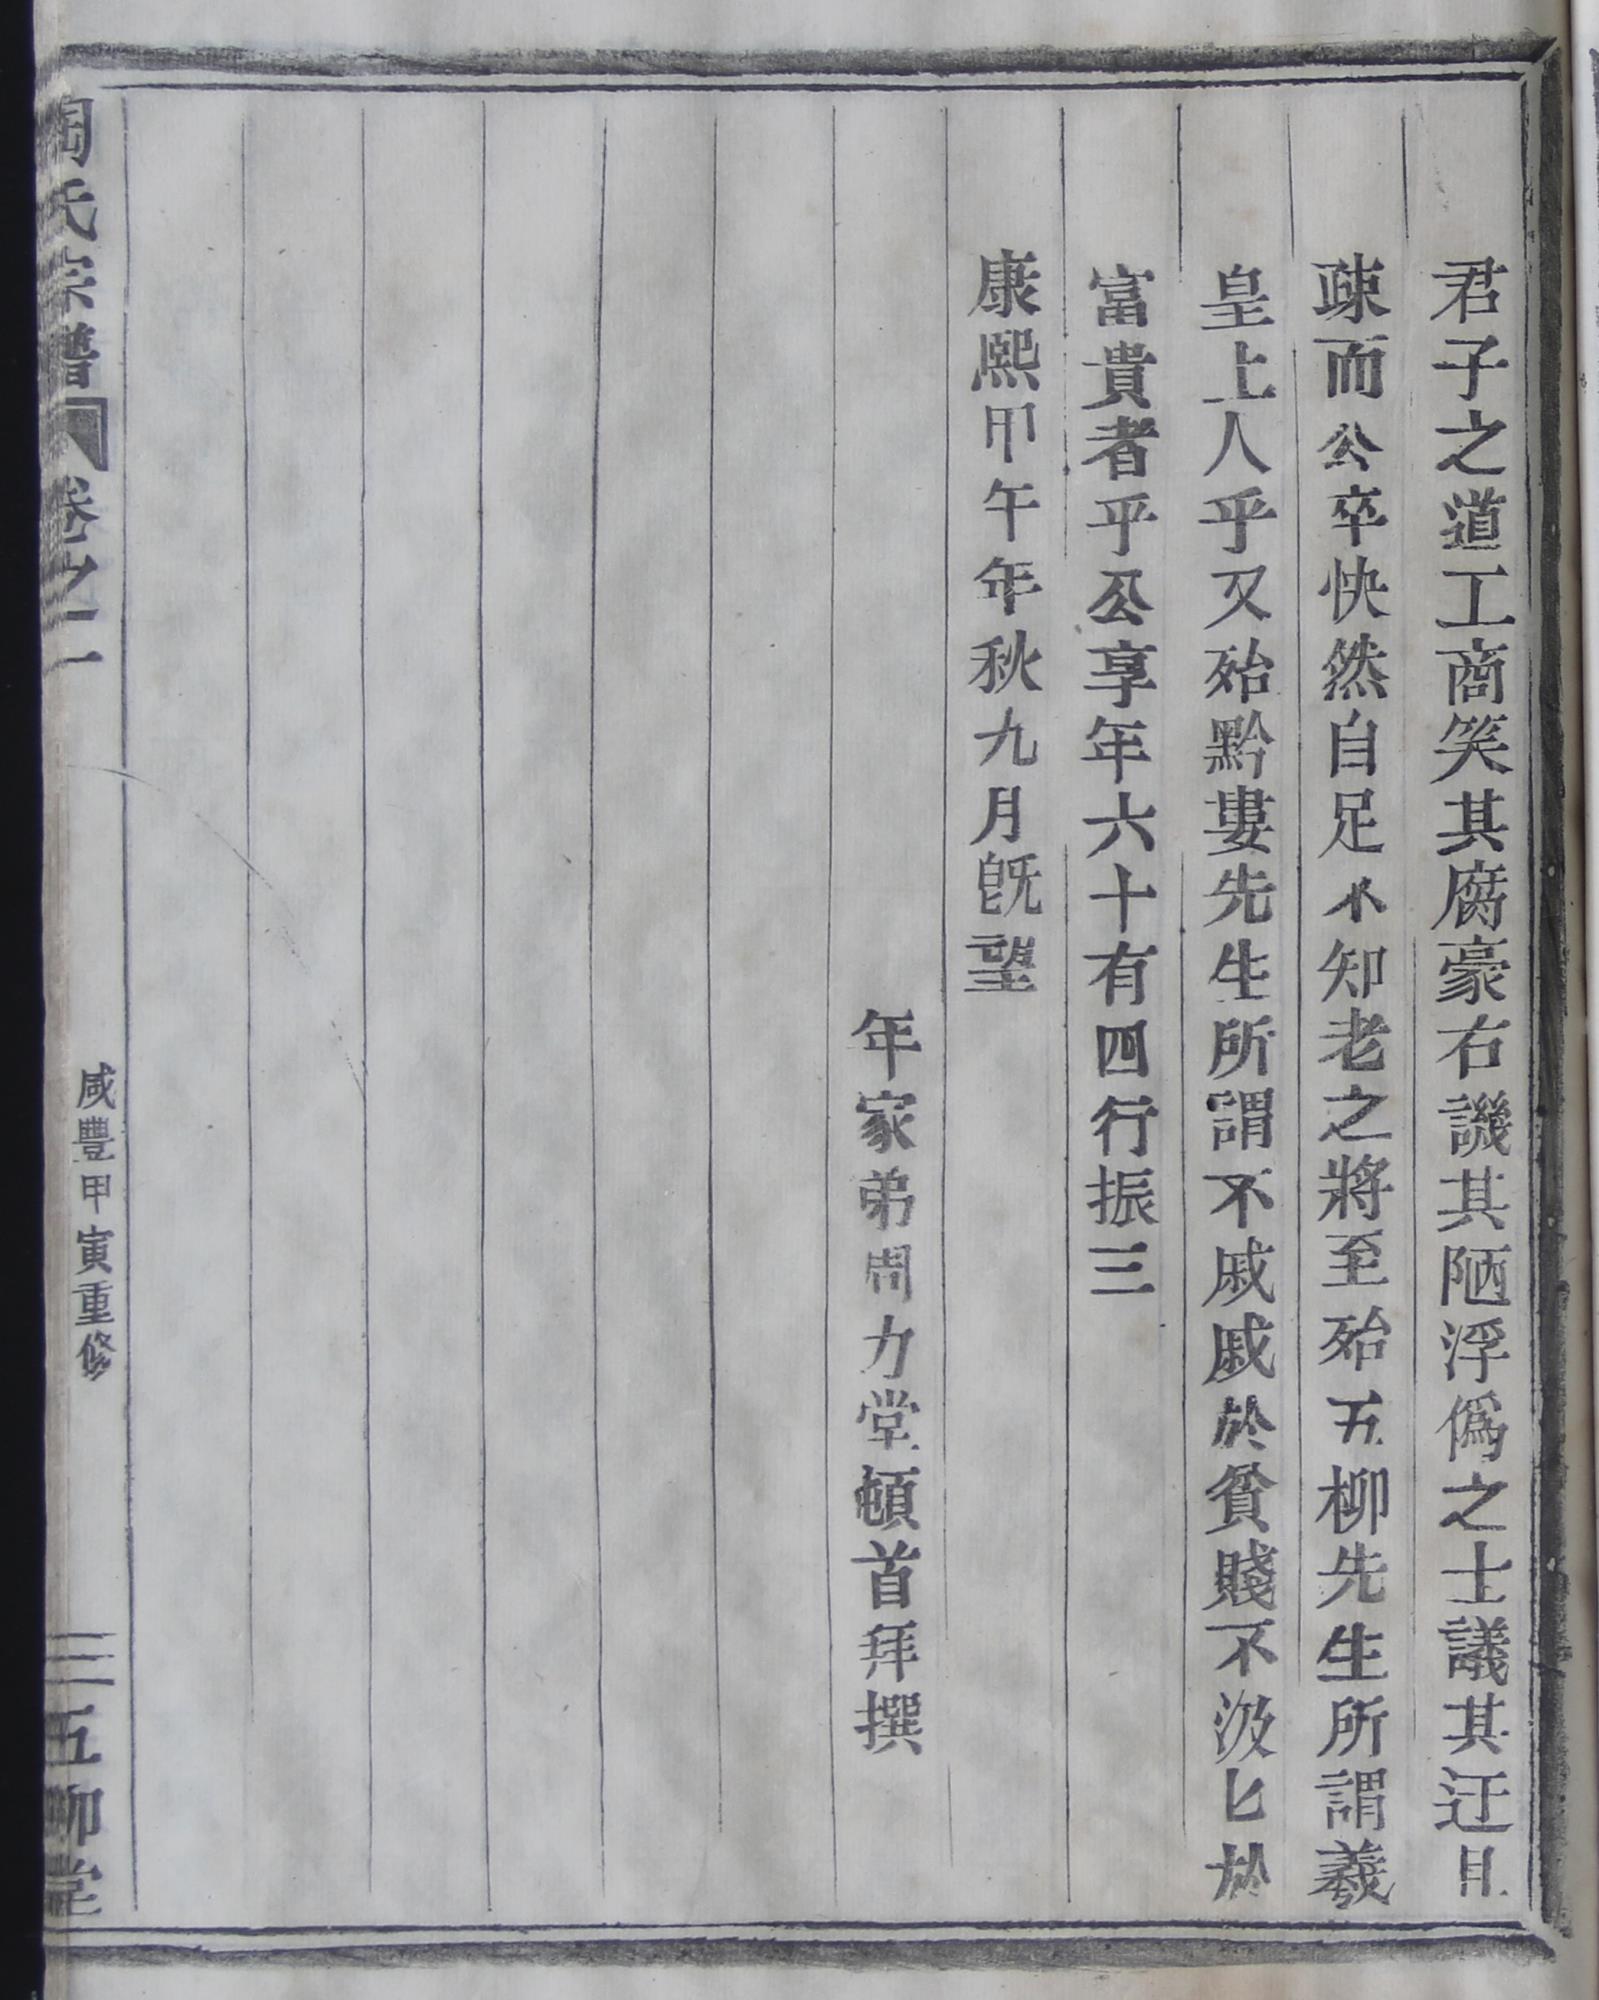 君子之道工商笑其腐豪右譏其陋浮僞之士議其迂且
疎而公卒快然自足不知老之將至殆五柳先生所謂羲
皇上人乎又殆黔婁先生所謂不戚戚於貧賤不汲匕於
富貴者乎公享年六十有四行振三
康熙甲午年秋九月旣望
年家弟周力堂頓首拜撰
陶氏宗譜 卷之二 咸豐甲寅重修 三 五柳堂